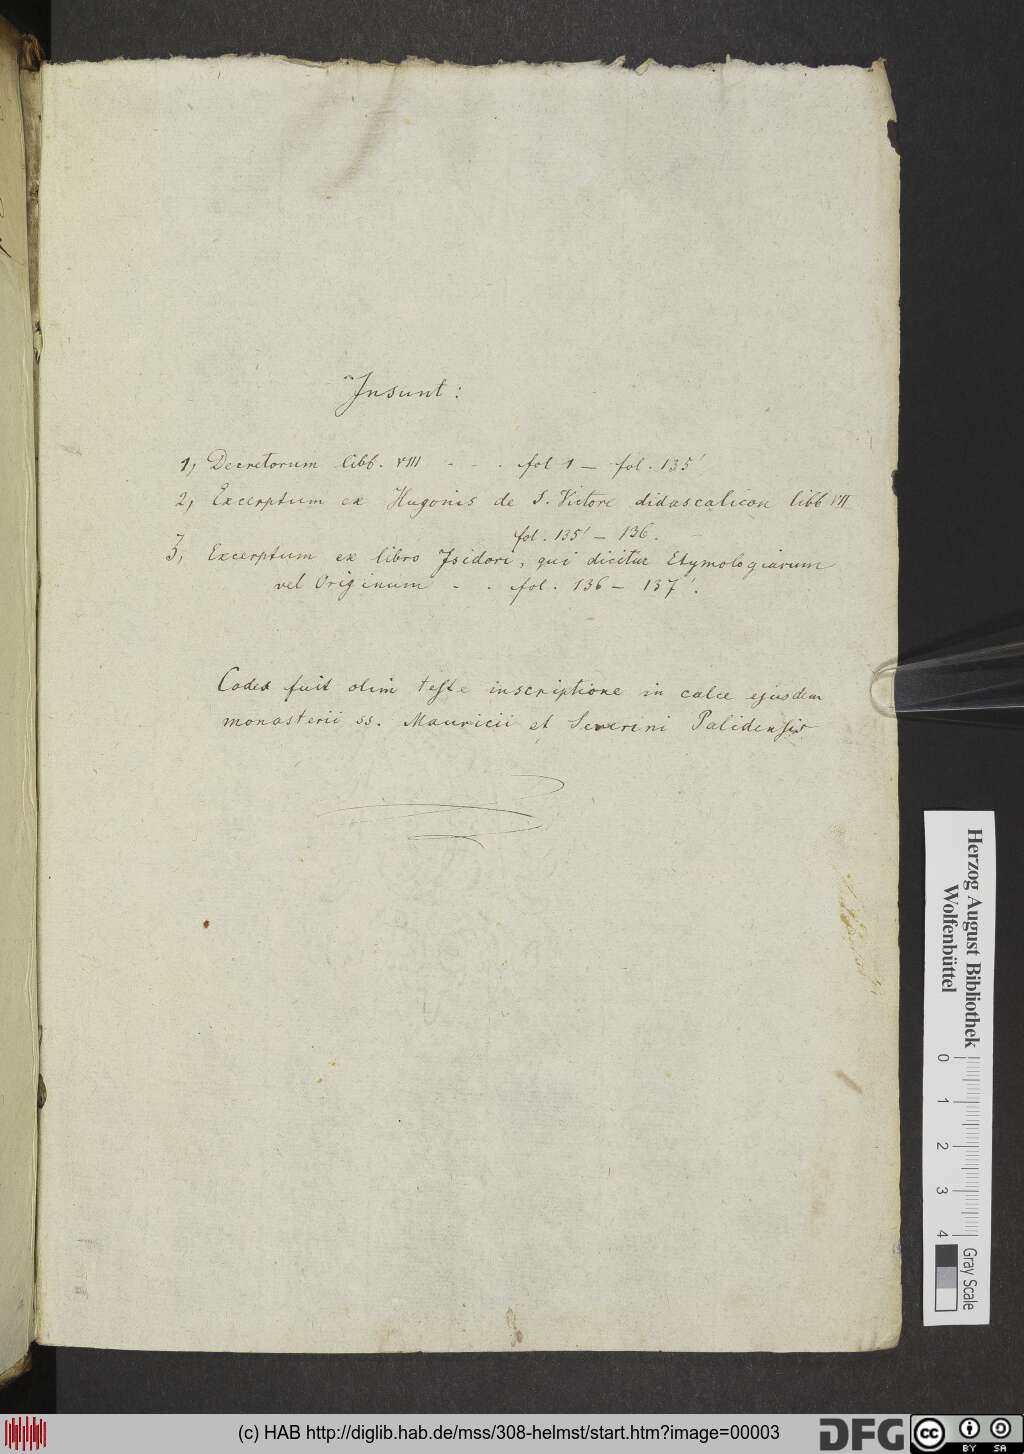 Insunt:
1, Decretorum libb. VIII - - . fol 1 — fol. 135'
2, Excerptum ex Hugonis de S. Victore didascalicon libb VII
fol. 135' — 136.
3, Excerptum ex libro Isidori, qui dicitur Etymologiarum
vel Originum - . fol. 136 — 137'.
Codex fuit olim teste inscriptione in calce ejusdem
monasterii ss. Mauricii et Severini Palidensis
Herzog August Bibliothek
Wolfenbüttel
0 1 2 3 4
Gray Scale
(c) HAB http://diglib.hab.de/mss/308-helmst/start.htm?image=00003
DFG
cc BY SA